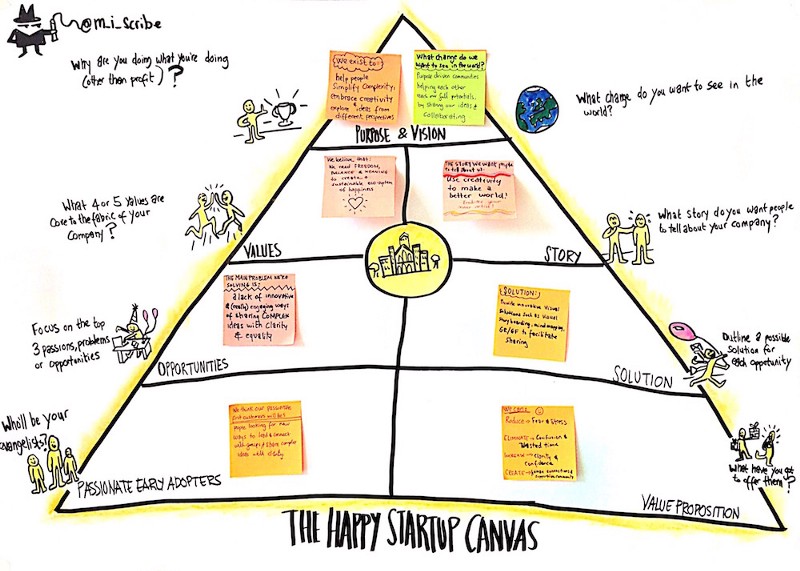 @m_i_scribe
Why are you doing what you're doing
(other than profit)?
We exist to:
help people
simplify complexity,
embrace creativity
explore ideas from
different perspectives
What change do we
want to see in the world?
Purpose driven communities
helping each other
reach our full potentials,
by sharing our ideas &
collaborating
What change do you want to see in the
world?
PURPOSE & VISION
What 4 or 5 values are
core to the fabric of your
company?
We believe that:
We need FREEDOM,
BALANCE & MEANING
to create a
sustainable ecosystem
of happiness
THE STORY WE WANT people
to tell about us:
Use creativity
to make a
better world!
What story do you want people
to tell about your company?
VALUES
STORY
Focus on the top
3 passions, problems
or opportunities
THE MAIN PROBLEM WE'RE
SOLVING IS:
a lack of innovative
& (really) engaging ways
of sharing COMPLEX
ideas with clarity
& equality
SOLUTION:
Provide innovative visual
solutions such as visual
storyboarding, mind mapping,
GR/GF to facilitate
sharing
Outline a possible
solution for
each opportunity
OPPORTUNITIES
SOLUTION
Who'll be your
evangelists?
We think our passionate
first customers will be:
people looking for new
ways to &  connect
with people & share complex
ideas with clarity
Reduce → Fear & Stress
ELIMINATE → Confusion &
Wasted time
INCREASE → Clarity &
confidence
CREATE →
What have you got
to offer them?
PASSIONATE EARLY ADOPTERS
VALUE PROPOSITION
THE HAPPY STARTUP CANVAS